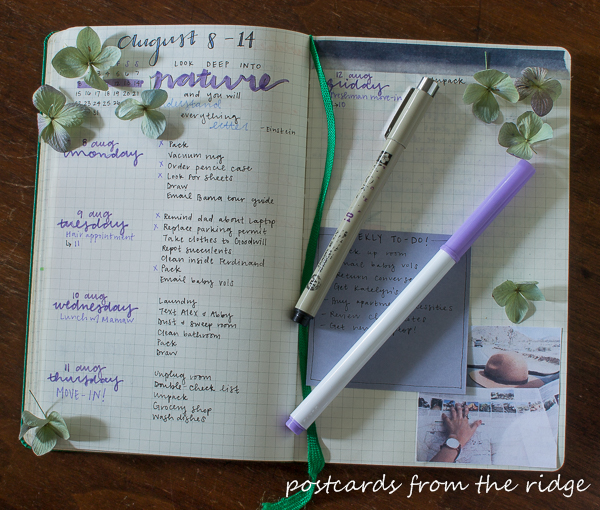 August 8-14
LOOK DEEP INTO
nature
and you will
understand
everything
better -Einstein
15 16 17 18 19
8 aug
monday
x Pack
Vacuum rug
x Order pencil case
x Look for sheets
Draw
Email Bama tour guide
9 aug
tuesday
Hair appointment
↳ 11
x Remind dad about Laptop
x Replace parking permit
Take clothes to Goodwill
Repot succulents
Clean inside Ferdinand
x Pack
Email baby vols
10 aug
wednesday
Lunch w/ Mamaw
Laundry
Text Alex & Abby
Dust & sweep room
Clean bathroom
Pack
Draw
11 aug
thursday
MOVE-IN!
Unplug room
Double-check list
Unpack
Grocery shop
Wash dishes
12 aug
friday
move-in
unpack
TO-DO!
up room
baby vols
- Buy
- Review
- Get
postcards from the ridge